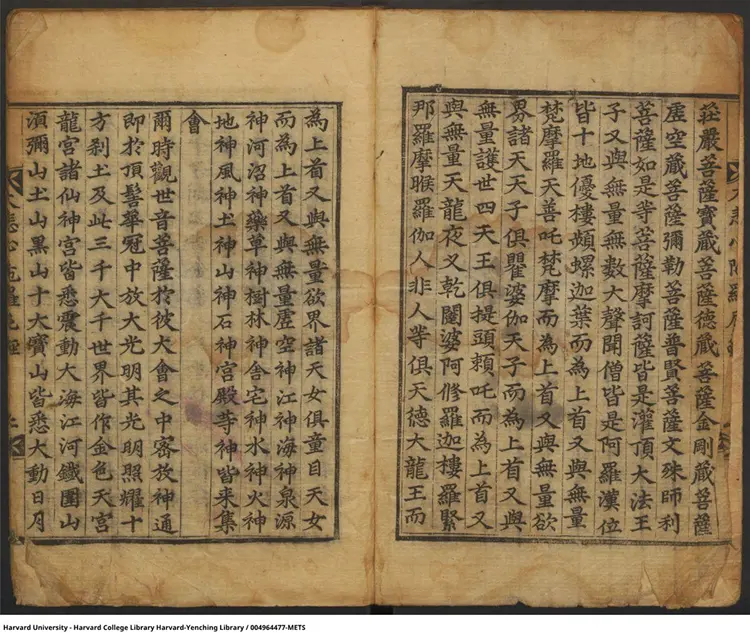 莊嚴菩薩寶藏菩薩德藏菩薩金剛藏菩薩
虛空藏菩薩彌勒菩薩普賢菩薩文殊師利
菩薩如是等菩薩摩訶薩皆是灌頂大法王
子又與無量無數大聲聞僧皆是阿羅漢位
皆十地優樓頻螺迦葉而為上首又與無量
梵摩羅天善吒梵摩而為上首又與無量欲
界諸天天子俱瞿婆伽天子而為上首又與
無量護世四天王俱提頭賴吒而為上首又
與無量天龍夜叉乾闥婆阿修羅迦樓羅緊
那羅摩睺羅伽人非人等俱天德大龍王而
為上首又與無量欲界諸天女俱童目天女
而為上首又與無量虛空神江神海神泉源
神河沼神藥草神樹林神舍宅神水神火神
地神風神土神山神石神宮殿等神皆来集
會
爾時觀世音菩薩於彼大會之中密放神通
即於頂髻華冠中放大光明其光明照耀十
方剎土及此三千大千世界皆作金色天宮
龍宮諸仙神宮皆悉震動大海江河鐵圍山
須彌山土山黑山十大寶山皆悉大動日月
Harvard University - Harvard College Library Harvard-Yenching Library / 004964477-METS